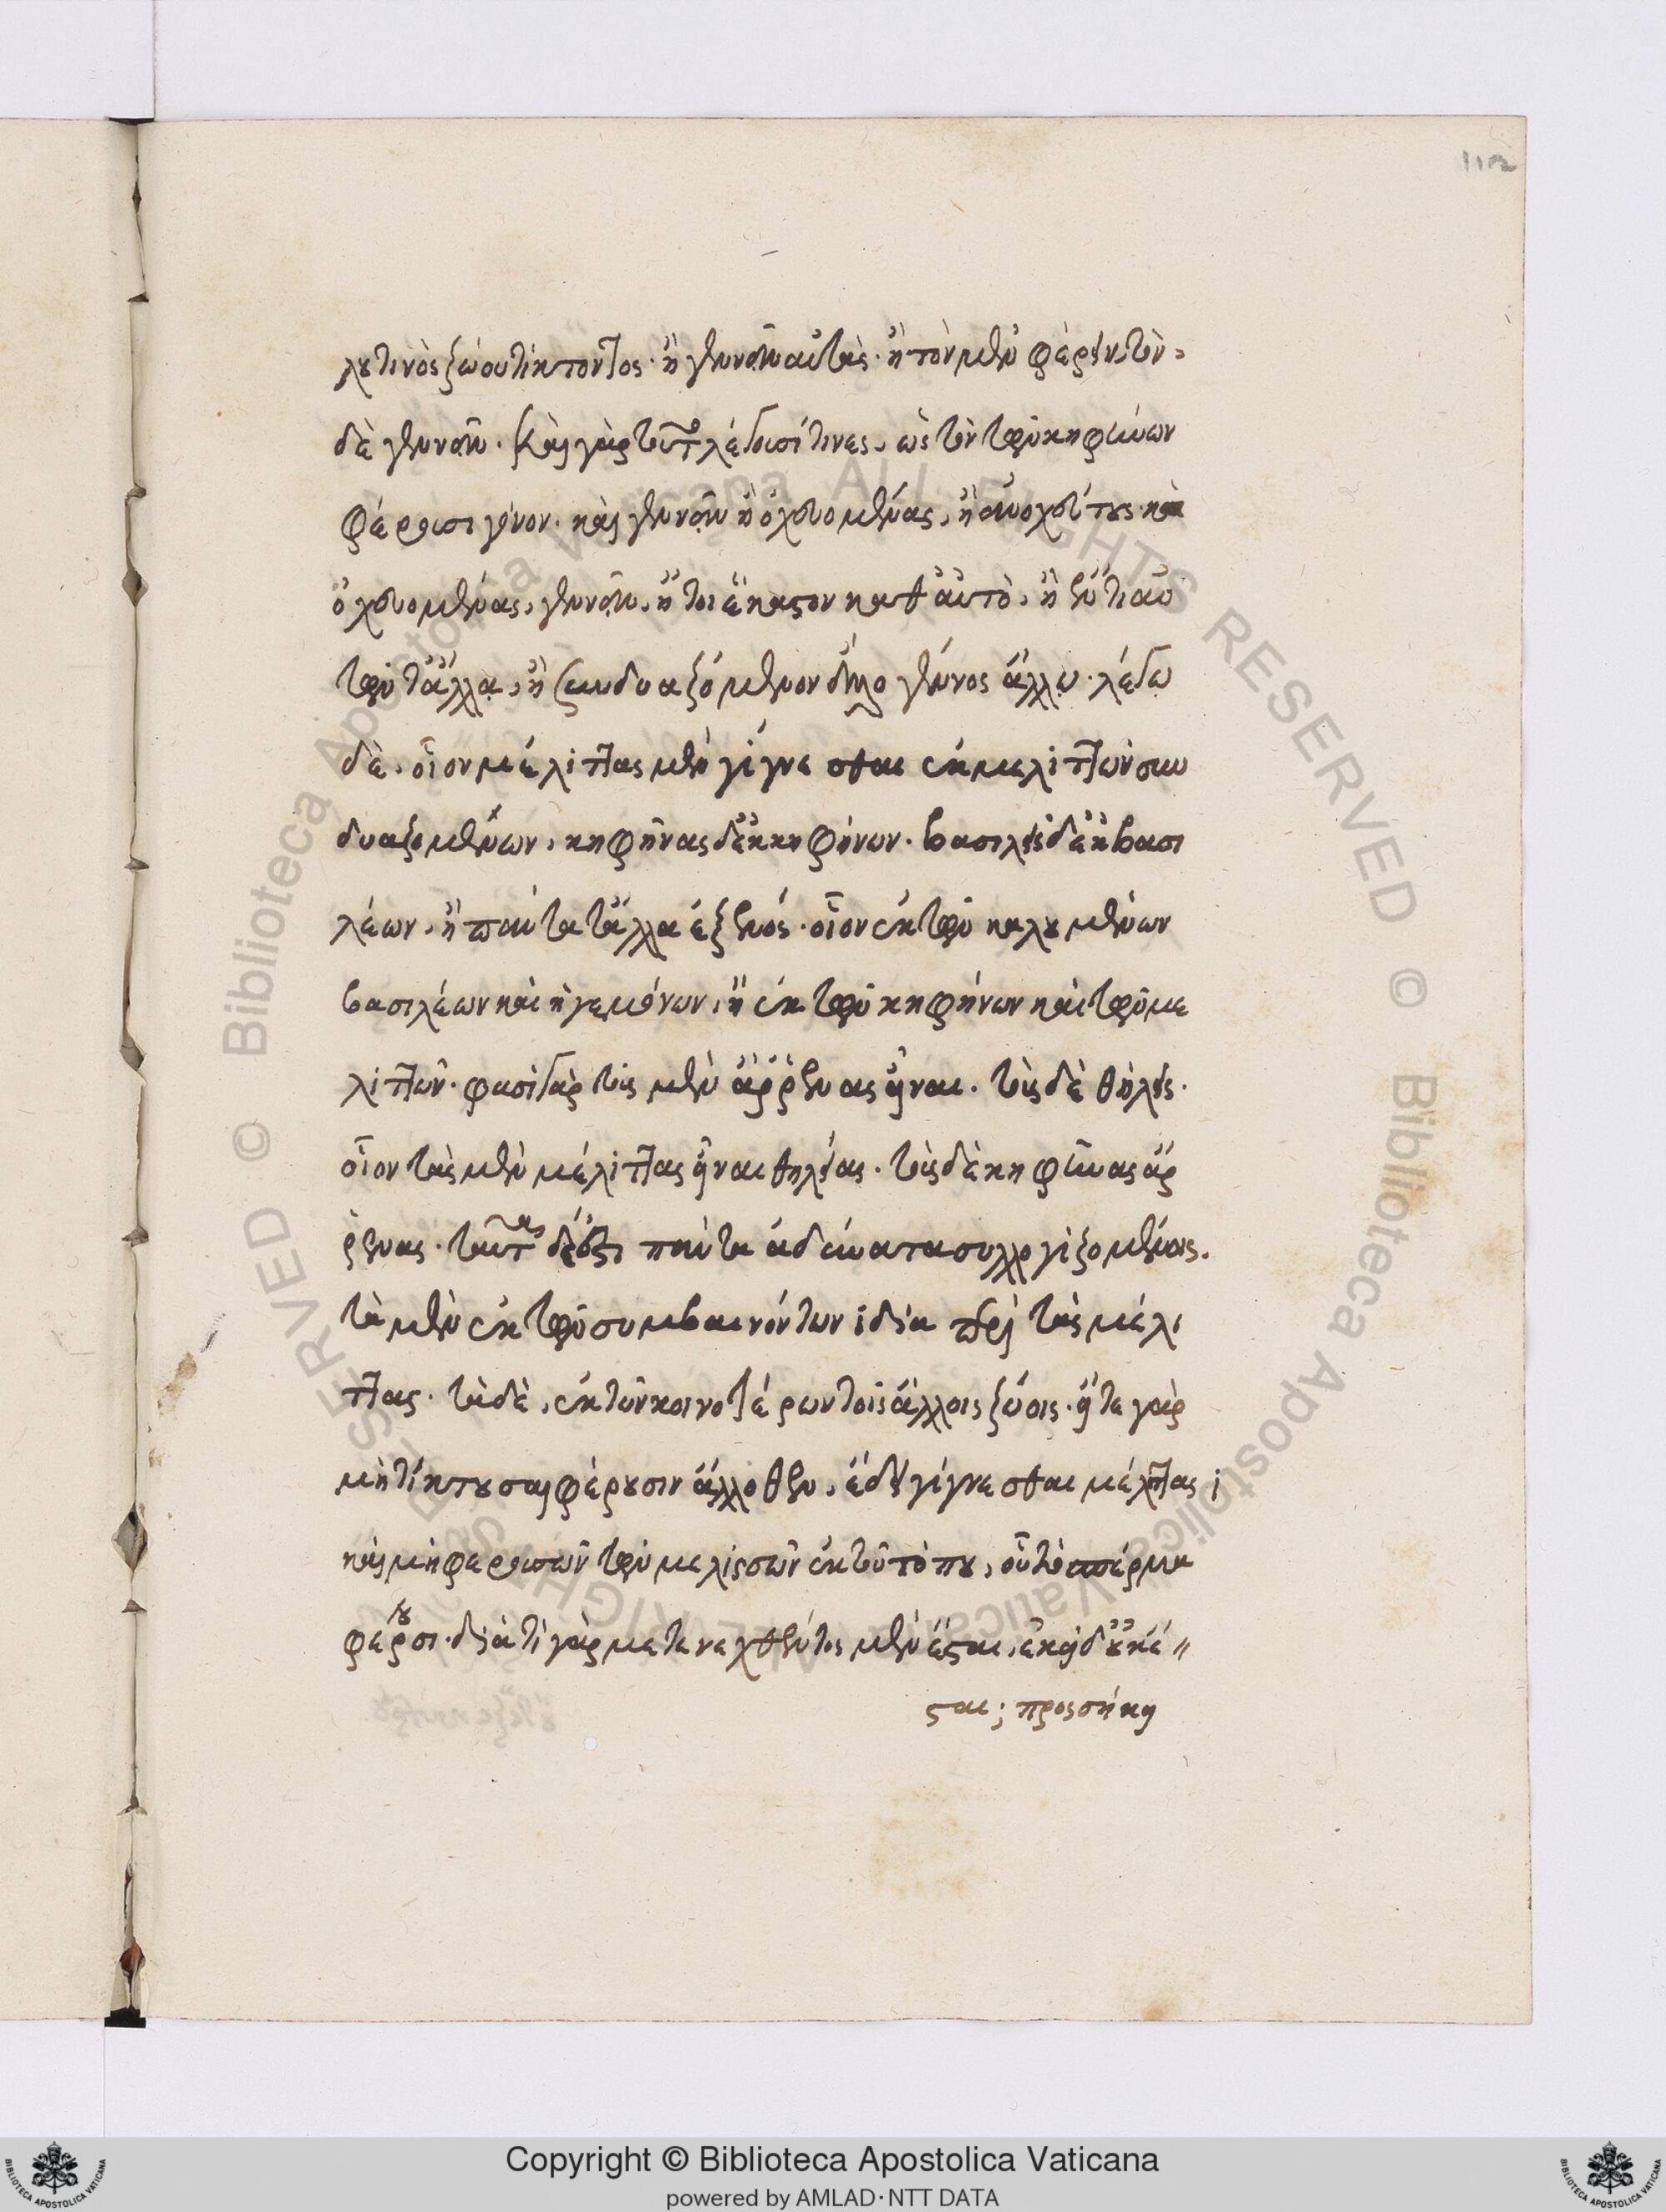 112
λου τινὸς ζώου τίκτοντος· ἢ γεννᾶν αὐτὰς· ἢ τὸν μὲν φέρειν, τὸν
δὲ γεννᾶν. Καὶ γὰρ τοῦτο λέγουσί τινες, ὡς τὸν τῶν κηφήνων
φέρουσι γόνον. καὶ γεννᾶν ἢ ὀχευομένας, ἢ ἀνοχεύτους. καὶ
ὀχευομένας, γεννᾶν, ἤτοι ἕκαστον καθ' αὑτὸ, ἢ ἕν τι αὐ
τῶν τἄλλα, ἢ συνδυαζόμενον ἄλλο γένος ἄλλῳ· λέγω
δὲ, οἷον μέλιττας μὲν γίγνεσθαι ἐκ μελιττῶν συν
δυαζομένων, κηφῆνας δ' ἐκ κηφήνων. βασιλεῖς δ' ἐκ βασι
λέων, ἢ πάντα τἄλλα ἐξ ἑνός· οἷον ἐκ τῶν καλουμένων
βασιλέων καὶ ἡγεμόνων, ἢ ἐκ τῶν κηφήνων καὶ τῶν με
λιττῶν. φασὶ γὰρ τοὺς μὲν ἄῤῥενας εἶναι. τοὺς δὲ θήλεις.
οἷον τὰς μὲν μέλιττας εἶναι θηλείας. τοὺς δὲ κηφῆνας ἄρ
ῥενας. ταῦτα δ' ἐστὶ πάντα ἀδύνατα συλλογιζομένοις.
τὰ μὲν ἐκ τῶν συμβαινόντων ἰδία περὶ τὰς μέλι
ττας. τὰ δὲ, ἐκ τῶν κοινοτέρων τοῖς ἄλλοις ζώοις. εἴτε γὰρ
μὴ τίκτουσαι φέρουσιν ἄλλοθεν, ἔδει γίγνεσθαι μελίττας
καὶ μὴ φερουσῶν τῶν μελισσῶν ἐκ τοῦ τόπου, οὗ τὸ σπέρμα
φέρουσι. διὰ τί γὰρ μετενεχθέντος μὲν ἔσται, ἐκεῖ δ' οὐκ έ〃
σται; προσήκει